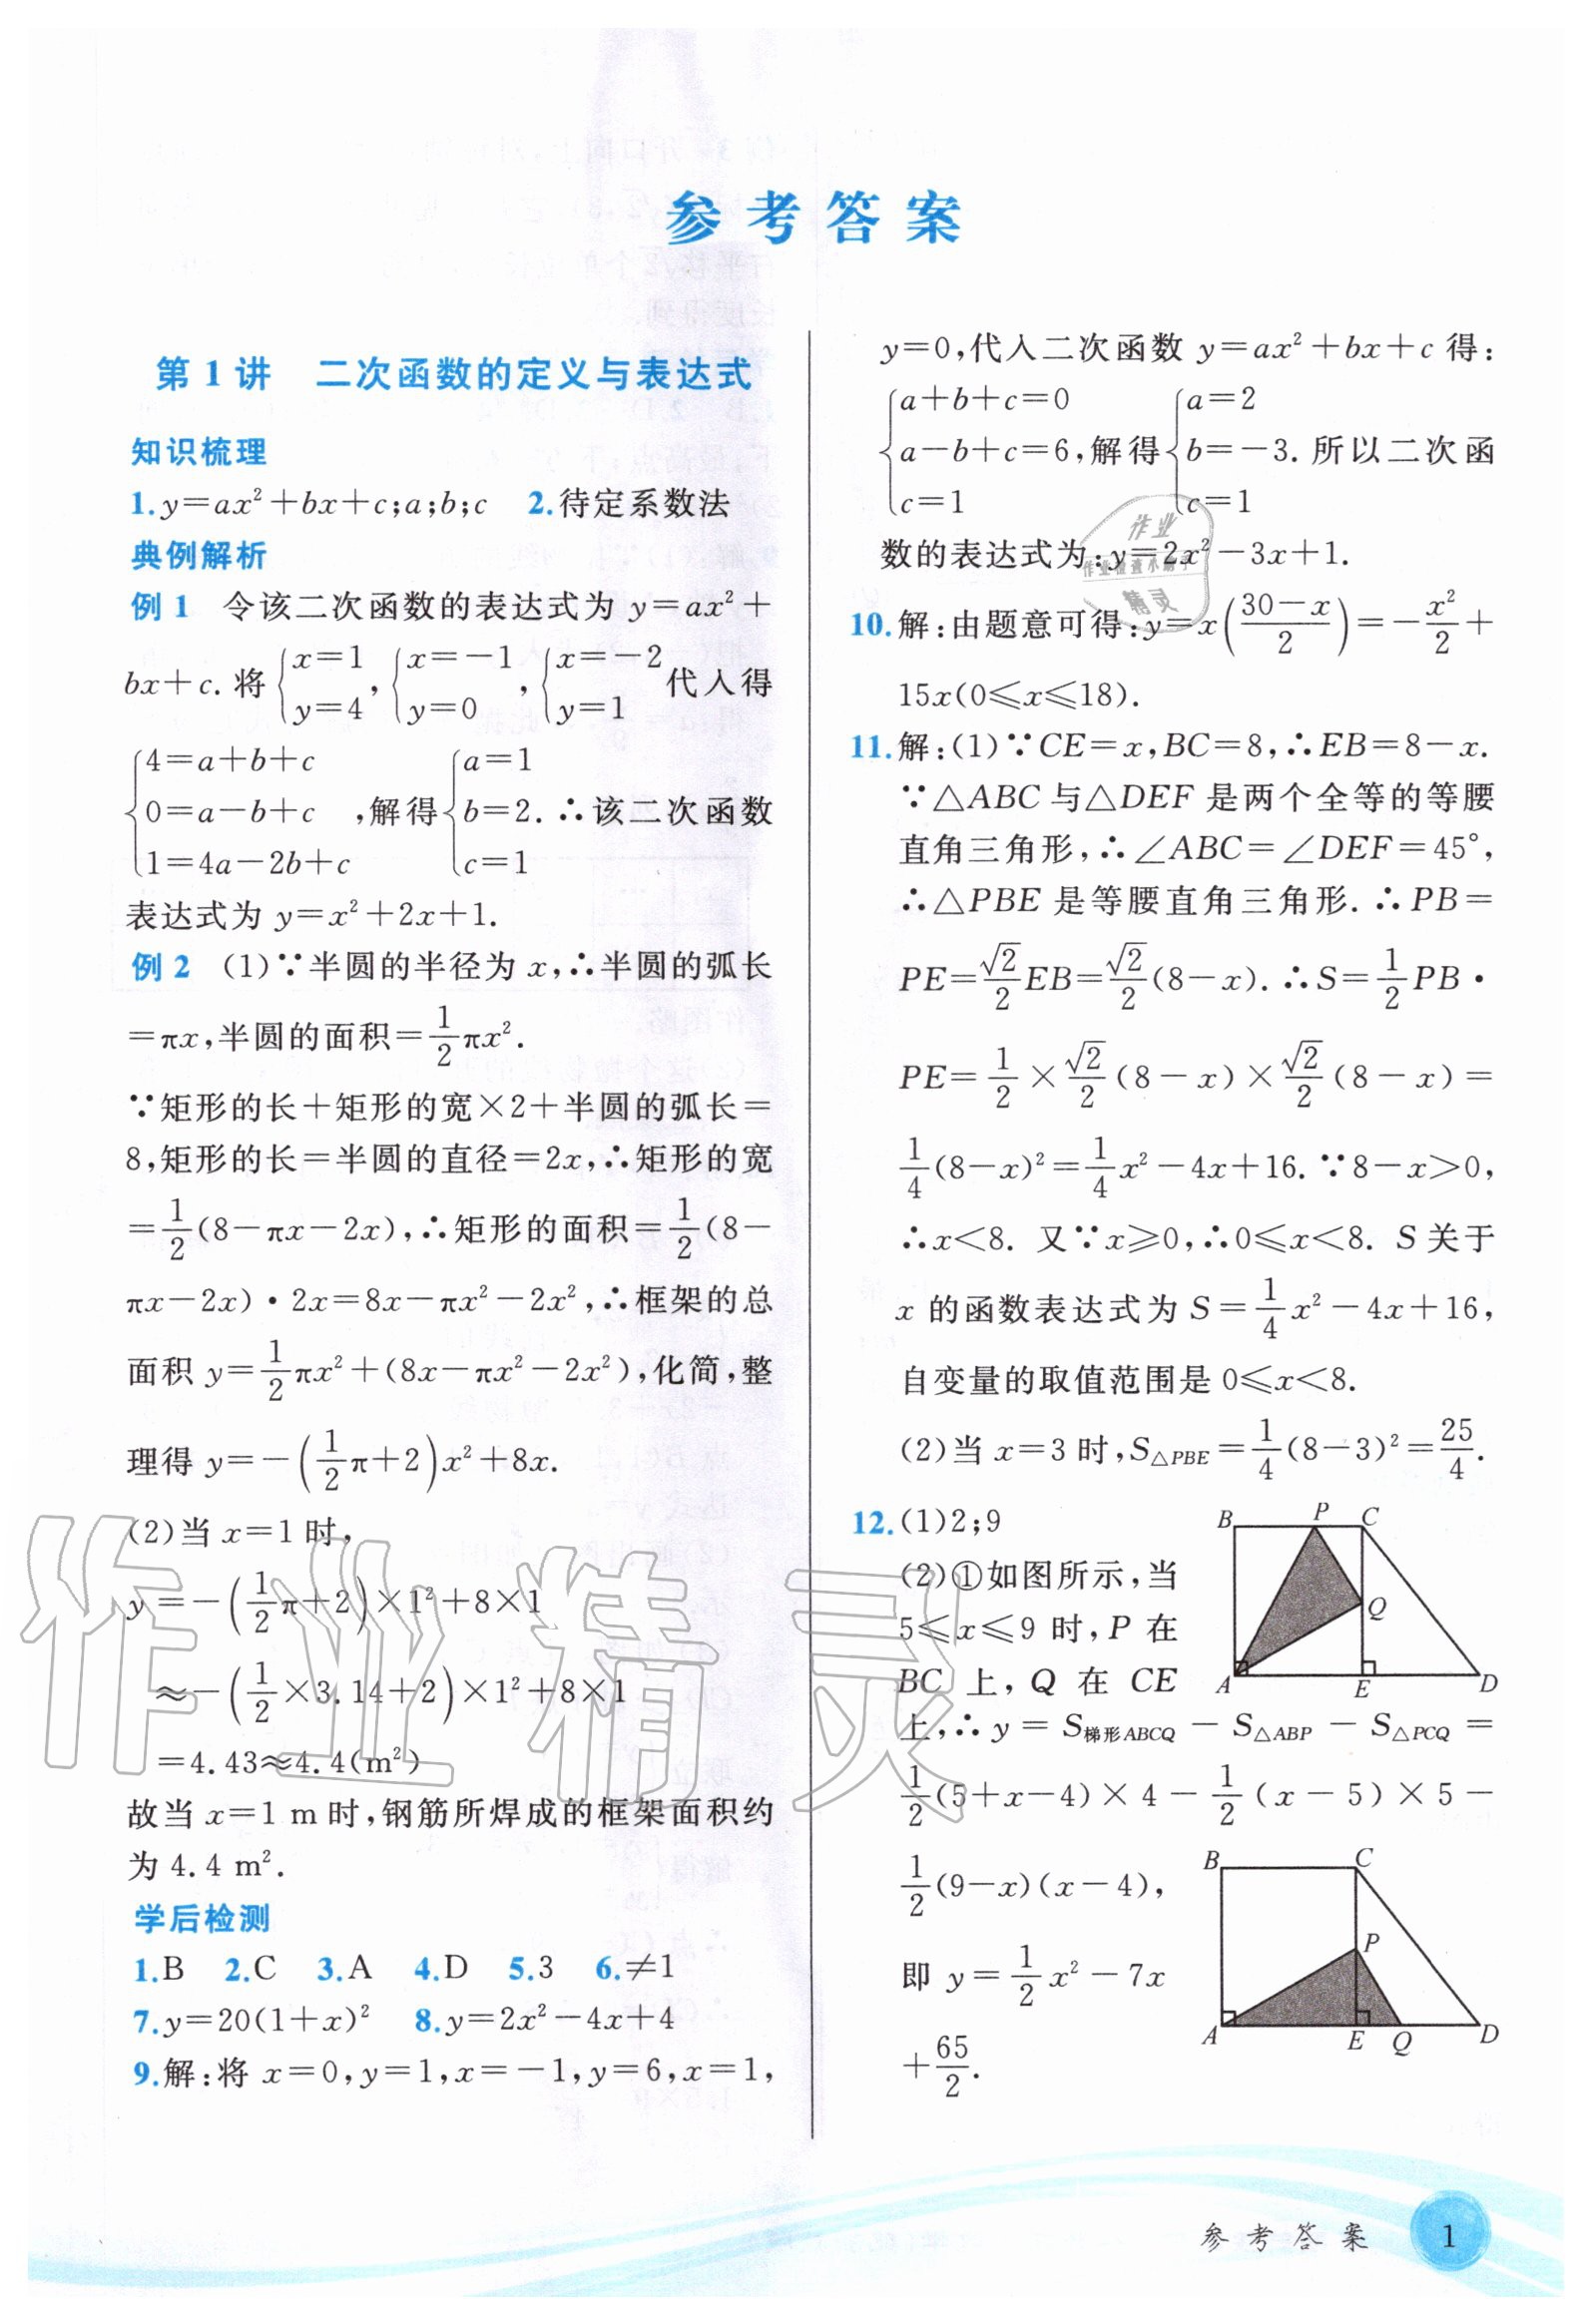 参考答案
第1讲 二次函数的定义与表达式
知识梳理
1.y=ax²+bx+c;a;b;c 2.待定系数法
典例解析
例1 令该二次函数的表达式为 y=ax²+
bx+c. 将{x=1, y=4, {x=-1, y=0, {x=-2, y=1 代入得
{4=a+b+c, 0=a-b+c, 1=4a-2b+c ,解得{a=1, b=2, c=1. ∴该二次函数
表达式为 y=x²+2x+1.
例2 (1)∵半圆的半径为 x,∴半圆的弧长
=πx,半圆的面积=1/2 πx².
∵矩形的长+矩形的宽×2+半圆的弧长=
8,矩形的长=半圆的直径=2x,∴矩形的宽
=1/2(8-πx-2x),∴矩形的面积=1/2(8-
πx-2x)·2x=8x-πx²-2x²,∴框架的总
面积 y=1/2 πx²+(8x-πx²-2x²),化简,整
理得 y=-(1/2 π+2)x²+8x.
(2)当 x=1 时,
y=-(1/2 π+2)×1²+8×1
≈-(1/2×3.14+2)×1²+8×1
=4.43≈4.4(m²)
故当 x=1 m 时,钢筋所焊成的框架面积约
为 4.4 m².
学后检测
1.B 2.C 3.A 4.D 5.3 6.≠1
7.y=20(1+x)² 8.y=2x²-4x+4
9.解:将 x=0,y=1,x=-1,y=6,x=1,
y=0,代入二次函数 y=ax²+bx+c 得:
{a+b+c=0, a-b+c=6, c=1 ,解得{a=2, b=-3, c=1. 所以二次函
数的表达式为:y=2x²-3x+1.
10.解:由题意可得:y=x((30-x)/2)=-x²/2+
15x(0≤x≤18).
11.解:(1)∵CE=x,BC=8,∴EB=8-x.
∵△ABC与△DEF 是两个全等的等腰
直角三角形,∴∠ABC=∠DEF=45°,
∴△PBE 是等腰直角三角形. ∴PB=
PE=√2/2 EB=√2/2(8-x). ∴S=1/2 PB·
PE=1/2×√2/2(8-x)×√2/2(8-x)=
1/4(8-x)²=1/4 x²-4x+16. ∵8-x>0,
∴x<8. 又∵x≥0,∴0≤x<8. S 关于
x 的函数表达式为 S=1/4 x²-4x+16,
自变量的取值范围是 0≤x<8.
(2)当 x=3 时,S△PBE=1/4(8-3)²=25/4.
12.(1)2;9
(2)①如图所示,当
5≤x≤9 时,P 在
BC 上,Q 在 CE
上,∴y=S梯形ABCQ-S△ABP-S△PCQ=
1/2(5+x-4)×4-1/2(x-5)×5-
1/2(9-x)(x-4),
即 y=1/2 x²-7x
+65/2.
B P C
Q
A E D
B C
P
A E Q D
作业
作业检查小助手
精灵
作业精灵
参考答案 1